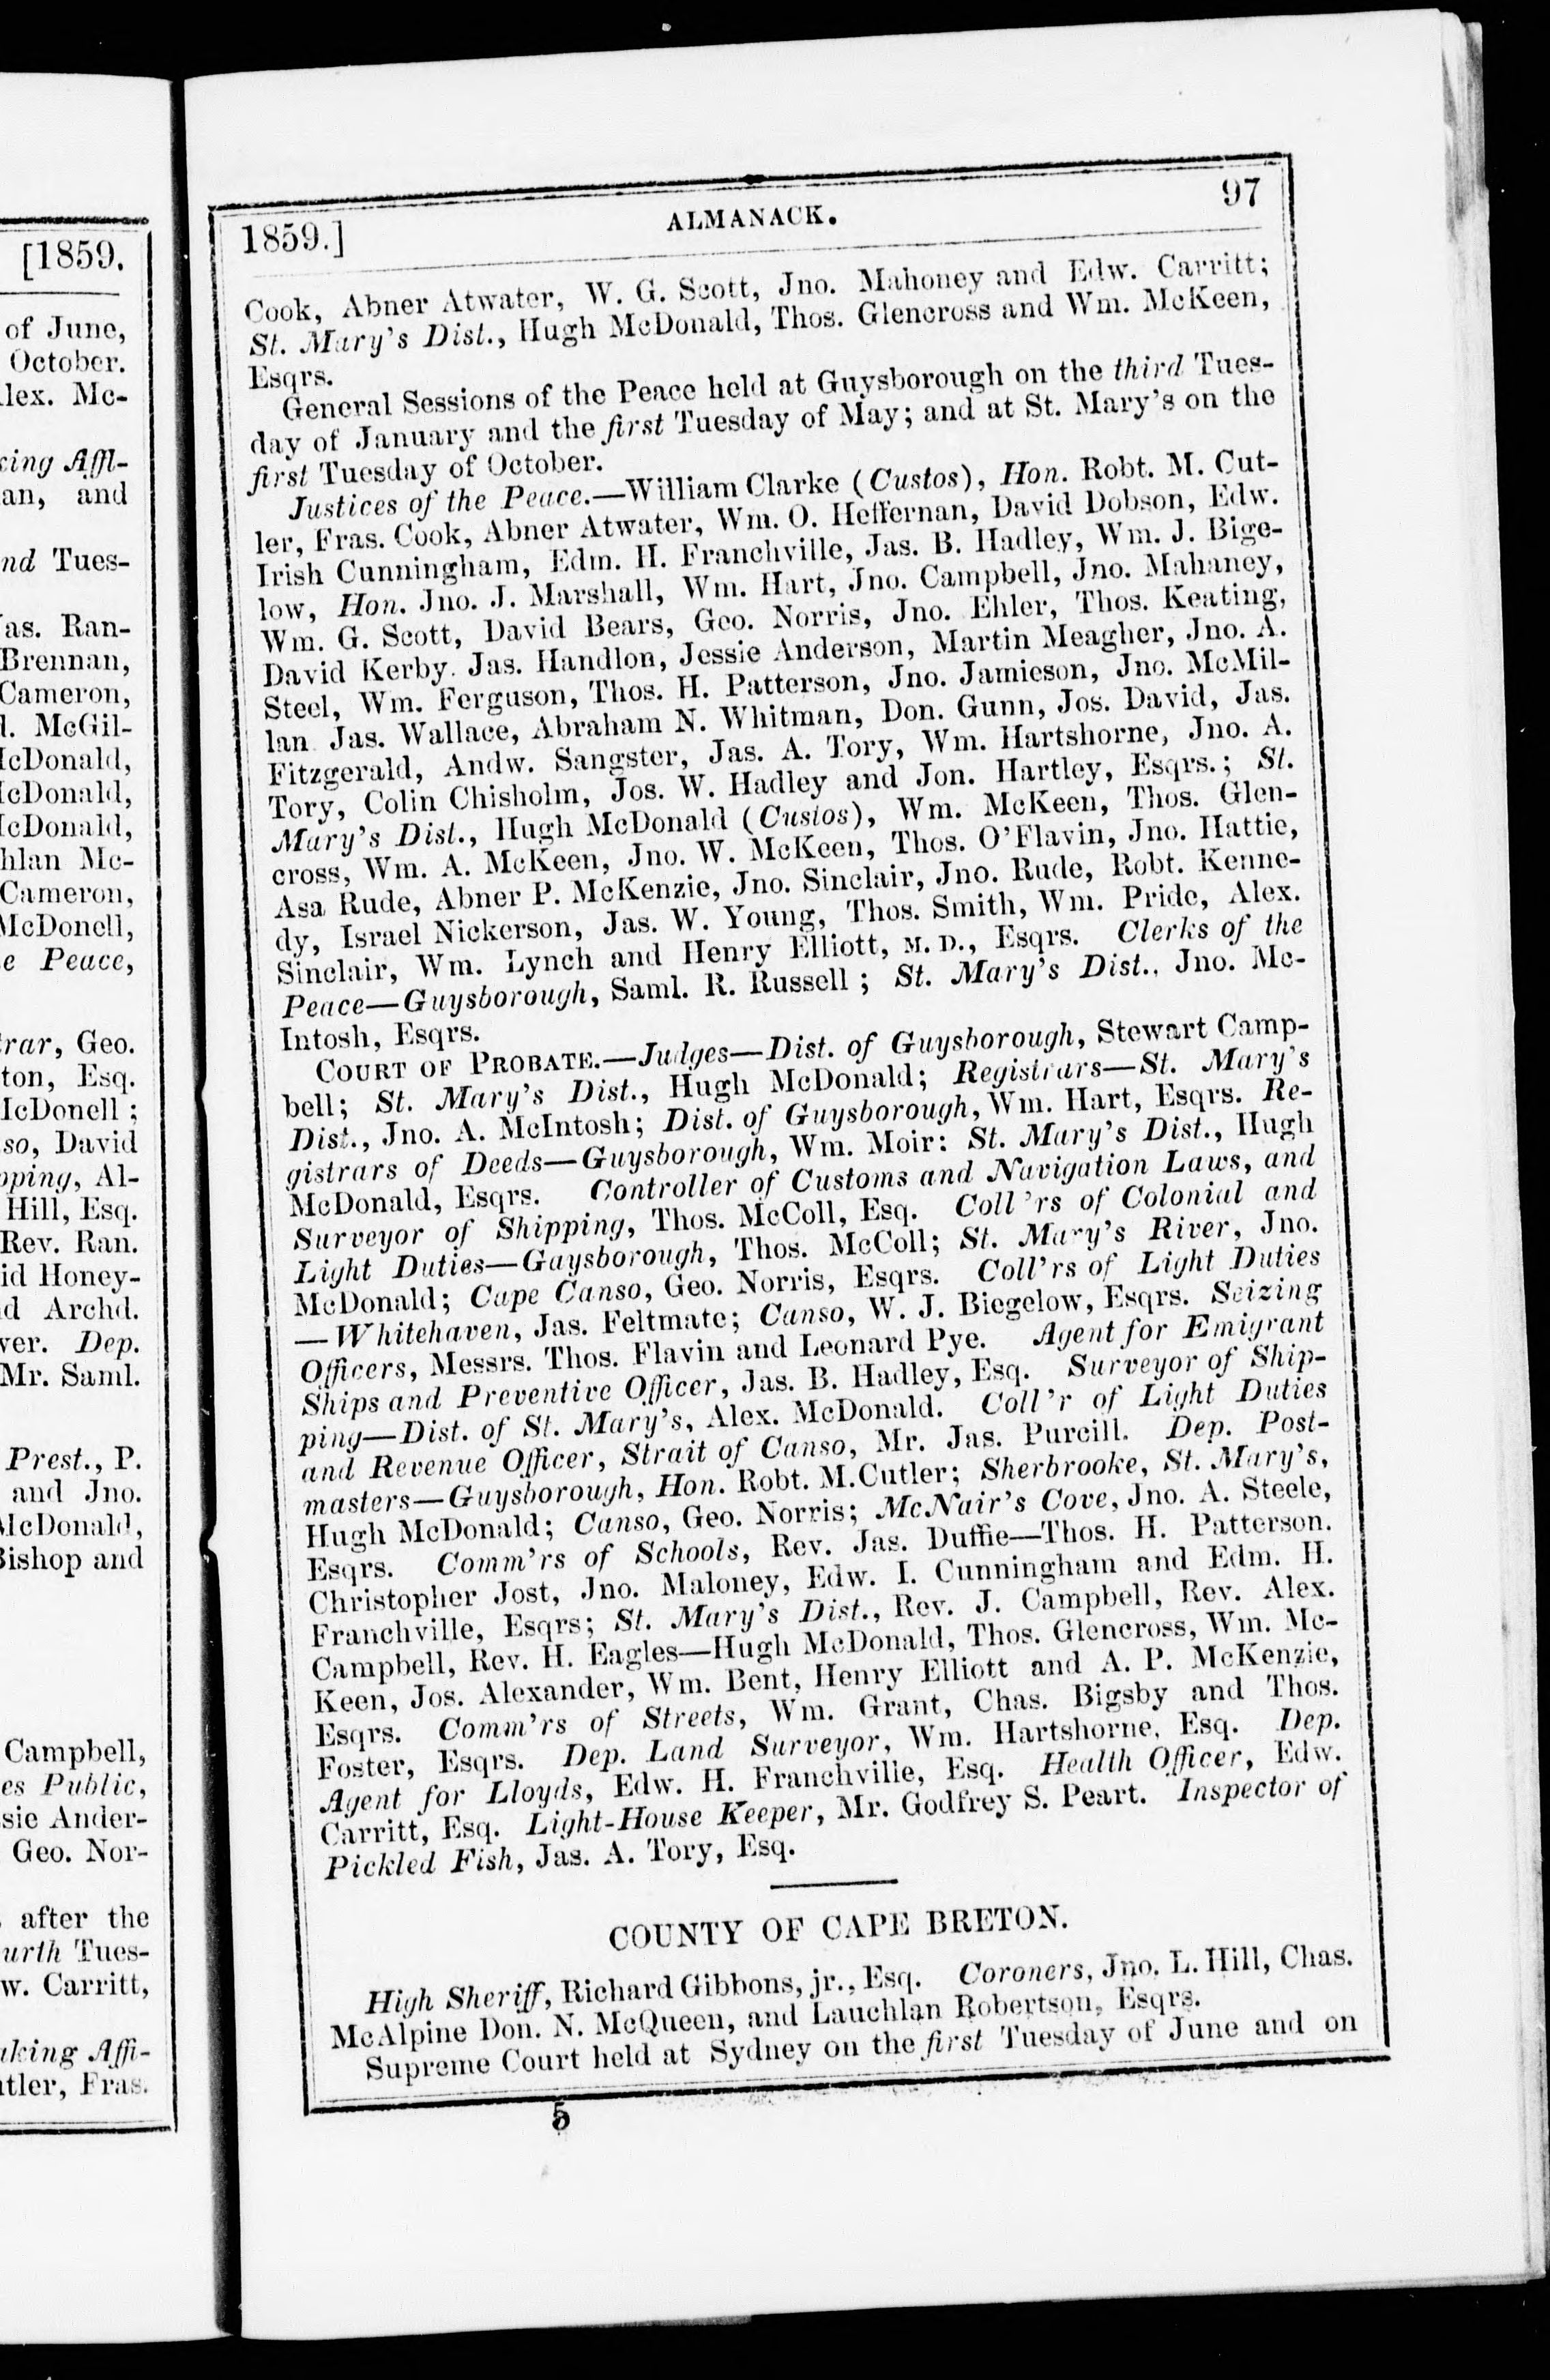 [1859.
of June,
October.
lex. Mc-
king Affi-
an, and
nd Tues-
as. Ran-
Brennan,
Cameron,
d. McGil-
McDonald,
McDonald,
McDonald,
hlan Mc-
Cameron,
McDonell,
e Peace,
rar, Geo.
ton, Esq.
McDonell ;
so, David
pping, Al-
Hill, Esq.
Rev. Ran.
id Honey-
d Archd.
ver. Dep.
Mr. Saml.
Prest., P.
and Jno.
McDonald,
Bishop and
Campbell,
es Public,
sie Ander-
Geo. Nor-
after the
urth Tues-
w. Carritt,
aking Affi-
tler, Fras.
1859.] ALMANACK. 97
Cook, Abner Atwater, W. G. Scott, Jno. Mahoney and Edw. Carritt;
St. Mary's Dist., Hugh McDonald, Thos. Glencross and Wm. McKeen,
Esqrs.
General Sessions of the Peace held at Guysborough on the third Tues-
day of January and the first Tuesday of May; and at St. Mary's on the
first Tuesday of October.
Justices of the Peace.—William Clarke (Custos), Hon. Robt. M. Cut-
ler, Fras. Cook, Abner Atwater, Wm. O. Heffernan, David Dobson, Edw.
Irish Cunningham, Edm. H. Franchville, Jas. B. Hadley, Wm. J. Bige-
low, Hon. Jno. J. Marshall, Wm. Hart, Jno. Campbell, Jno. Mahaney,
Wm. G. Scott, David Bears, Geo. Norris, Jno. Ehler, Thos. Keating,
David Kerby. Jas. Handlon, Jessie Anderson, Martin Meagher, Jno. A.
Steel, Wm. Ferguson, Thos. H. Patterson, Jno. Jamieson, Jno. McMil-
lan Jas. Wallace, Abraham N. Whitman, Don. Gunn, Jos. David, Jas.
Fitzgerald, Andw. Sangster, Jas. A. Tory, Wm. Hartshorne, Jno. A.
Tory, Colin Chisholm, Jos. W. Hadley and Jon. Hartley, Esqrs.; St.
Mary's Dist., Hugh McDonald (Custos), Wm. McKeen, Thos. Glen-
cross, Wm. A. McKeen, Jno. W. McKeen, Thos. O'Flavin, Jno. Hattie,
Asa Rude, Abner P. McKenzie, Jno. Sinclair, Jno. Rude, Robt. Kenne-
dy, Israel Nickerson, Jas. W. Young, Thos. Smith, Wm. Pride, Alex.
Sinclair, Wm. Lynch and Henry Elliott, M. D., Esqrs. Clerks of the
Peace—Guysborough, Saml. R. Russell ; St. Mary's Dist., Jno. Mc-
Intosh, Esqrs.
COURT OF PROBATE.—Judges—Dist. of Guysborough, Stewart Camp-
bell; St. Mary's Dist., Hugh McDonald; Registrars—St. Mary's
Dist., Jno. A. McIntosh; Dist. of Guysborough, Wm. Hart, Esqrs. Re-
gistrars of Deeds—Guysborough, Wm. Moir: St. Mary's Dist., Hugh
McDonald, Esqrs. Controller of Customs and Navigation Laws, and
Surveyor of Shipping, Thos. McColl, Esq. Coll'rs of Colonial and
Light Duties—Guysborough, Thos. McColl; St. Mary's River, Jno.
McDonald; Cape Canso, Geo. Norris, Esqrs. Coll'rs of Light Duties
—Whitehaven, Jas. Feltmate; Canso, W. J. Biegelow, Esqrs. Seizing
Officers, Messrs. Thos. Flavin and Leonard Pye. Agent for Emigrant
Ships and Preventive Officer, Jas. B. Hadley, Esq. Surveyor of Ship-
ping—Dist. of St. Mary's, Alex. McDonald. Coll'r of Light Duties
and Revenue Officer, Strait of Canso, Mr. Jas. Purcill. Dep. Post-
masters—Guysborough, Hon. Robt. M. Cutler; Sherbrooke, St. Mary's,
Hugh McDonald; Canso, Geo. Norris; McNair's Cove, Jno. A. Steele,
Esqrs. Comm'rs of Schools, Rev. Jas. Duffie—Thos. H. Patterson.
Christopher Jost, Jno. Maloney, Edw. I. Cunningham and Edm. H.
Franchville, Esqrs; St. Mary's Dist., Rev. J. Campbell, Rev. Alex.
Campbell, Rev. H. Eagles—Hugh McDonald, Thos. Glencross, Wm. Mc-
Keen, Jos. Alexander, Wm. Bent, Henry Elliott and A. P. McKenzie,
Esqrs. Comm'rs of Streets, Wm. Grant, Chas. Bigsby and Thos.
Foster, Esqrs. Dep. Land Surveyor, Wm. Hartshorne, Esq. Dep.
Agent for Lloyds, Edw. H. Franchville, Esq. Health Officer, Edw.
Carritt, Esq. Light-House Keeper, Mr. Godfrey S. Peart. Inspector of
Pickled Fish, Jas. A. Tory, Esq.
COUNTY OF CAPE BRETON.
High Sheriff, Richard Gibbons, jr., Esq. Coroners, Jno. L. Hill, Chas.
McAlpine Don. N. McQueen, and Lauchlan Robertson, Esqrs.
Supreme Court held at Sydney on the first Tuesday of June and on
5